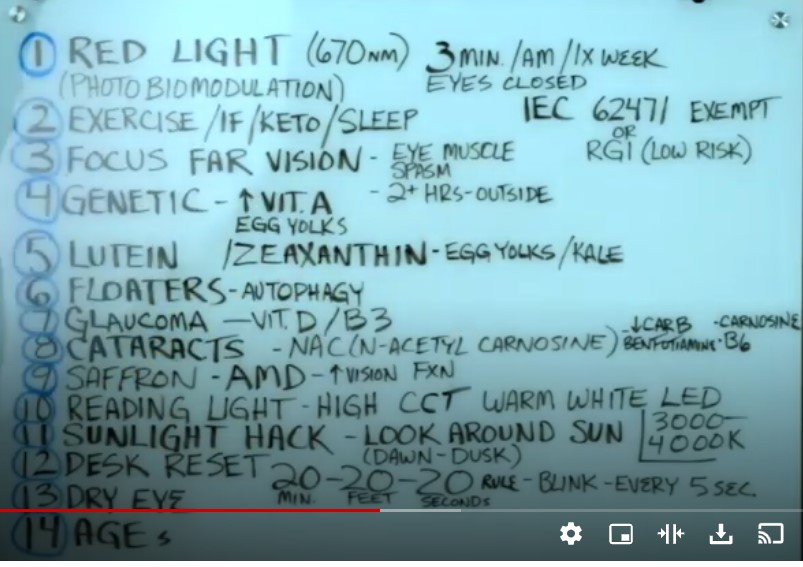 ① RED LIGHT (670NM) 3 MIN./AM/1X WEEK
(PHOTOBIOMODULATION) EYES CLOSED
② EXERCISE/IF/KETO/SLEEP IEC 62471 EXEMPT
OR
③ FOCUS FAR VISION - EYE MUSCLE RG1 (LOW RISK)
SPASM
④ GENETIC - ↑ VIT. A - 2+ HRS-OUTSIDE
EGG YOLKS
⑤ LUTEIN /ZEAXANTHIN - EGG YOLKS/KALE
⑥ FLOATERS - AUTOPHAGY
⑦ GLAUCOMA - VIT. D/B3 -↓CARB -CARNOSINE
⑧ CATARACTS - NAC (N-ACETYL CARNOSINE) BENFOTIAMINE -B6
⑨ SAFFRON - AMD - ↑ VISION FXN
⑩ READING LIGHT - HIGH CCT WARM WHITE LED
⑪ SUNLIGHT HACK - LOOK AROUND SUN 3000-
4000K
(DAWN-DUSK)
⑫ DESK RESET 20-20-20 RULE - BLINK-EVERY 5 SEC.
MIN. FEET SECONDS
⑬ DRY EYE
⑭ AGEs